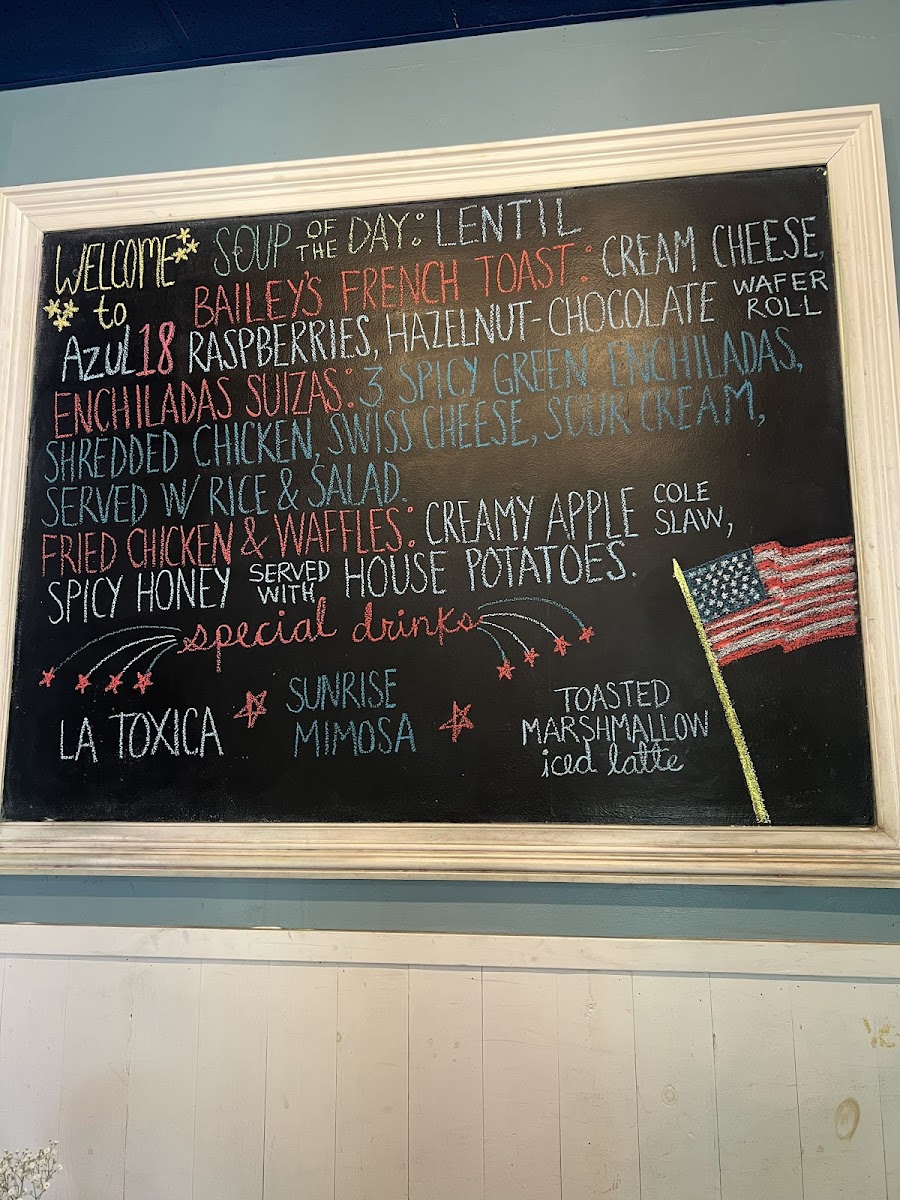 WELCOME
to
Azul 18
SOUP OF THE DAY: LENTIL
BAILEY'S FRENCH TOAST: CREAM CHEESE,
RASPBERRIES, HAZELNUT-CHOCOLATE WAFER ROLL
ENCHILADAS SUIZAS: 3 SPICY GREEN ENCHILADAS,
SHREDDED CHICKEN, SWISS CHEESE, SOUR CREAM,
SERVED W/ RICE & SALAD.
FRIED CHICKEN & WAFFLES: CREAMY APPLE COLE SLAW,
SPICY HONEY SERVED WITH HOUSE POTATOES.
special drinks
LA TOXICA
SUNRISE
MIMOSA
TOASTED
MARSHMALLOW
iced latte